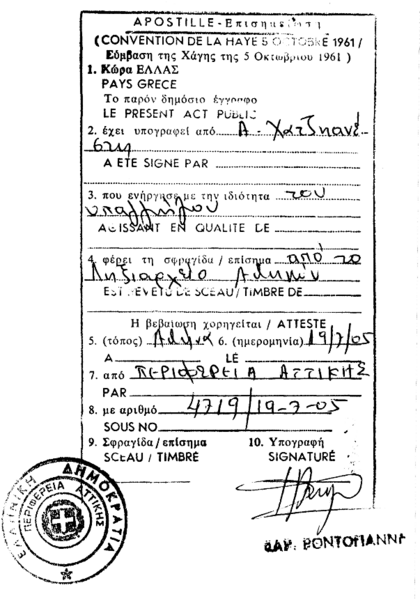 APOSTILLE-Επισημείωση
(CONVENTION DE LA HAYE 5 OCTOBRE 1961 /
Σύμβαση της Χάγης της 5 Οκτωβρίου 1961 )
1. Χώρα ΕΛΛΑΣ
PAYS GRECE
Το παρόν δημόσιο έγγραφο
LE PRESENT ACT PUBLIC
2. έχει υπογραφεί από Α. Χατζηανέ-
στη
A ETE SIGNE PAR
3. που ενήργησε με την ιδιότητα του
υπαλλήλου
AGISSANT EN QUALITE DE
4. φέρει τη σφραγίδα / επίσημα από το
Ληξιαρχείο Αθηνών
EST REVETU DE SCEAU / TIMBRE DE
Η βεβαίωση χορηγείται / ATTESTE
5. (τόπος) Αθήνα 6. (ημερομηνία) 19/7/05
A LE
7. από ΠΕΡΙΦΕΡΕΙΑ ΑΤΤΙΚΗΣ
PAR
8. με αριθμό 4719/19-7-05
SOUS NO
9. Σφραγίδα / επίσημα 10. Υπογραφή
SCEAU / TIMBRÉ SIGNATURÉ
ΕΛΛΗΝΙΚΗ ΔΗΜΟΚΡΑΤΙΑ
ΠΕΡΙΦΕΡΕΙΑ ΑΤΤΙΚΗΣ
ΡΟΝΤΟΓΙΑΝΝΗ